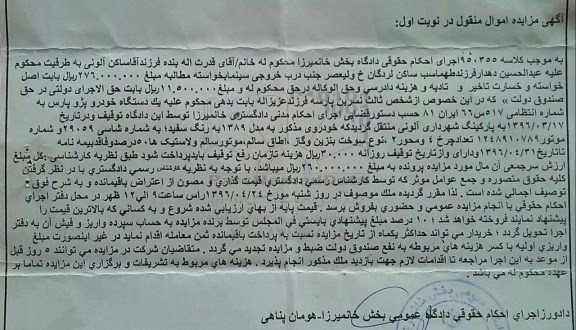 آگهی مزایده اموال منقول در نوبت اول:
به موجب کلاسه ۹۵۰۳۵۵اجرای احکام حقوقی دادگاه بخش خانمیرزا محکوم له خانم/آقای قدرت اله بنده فرزندآقاساکن آلونی به طرفیت محکوم
علیه عبدالحسین دهدارفرزندطهماسب ساکن لردگان خ ولیعصر جنب درب خروجی سینمابخواسته مطالبه مبلغ ۲۷۶.۰۰۰.۰۰۰ریال بابت اصل
خواسته و خسارت تاخیر و تادیه و هزینه دادرسی وحق الوکاله درحق محکوم له و مبلغ ۱۱.۵۰۰.۰۰۰ریال بابت حق الاجرای دولتی در حق
صندوق دولت » که در این خصوص ازشخص ثالث نسرین پناهی فرزندعزیزاله بابت بدهی محکوم علیه یك دستگاه خودرو پژو پارس به
شماره انتظامی ۵۱۷ص۶۶ ایران ۸۱ حسب دستورقضایی اجرای احکام مدنی دادگستری خانمیرزا توسط این دادگاه توقیف ودرتاریخ
۱۳۹۶/۰۳/۱۷ به پارکینگ شهرداری آلونی منتقل گردیدکه خودروی مذکور به مدل ۱۳۸۹ به رنگ سفید؛ به شماره شاسی ۲۹۰۵۹و شماره
موتور۱۲۴۸۹۰۷۸۹تعدادچرخ ۴ ومحور۲ ،نوع سوخت بنزین وگاز ،اطاق سالم،موتورسالم ولاستیك ها،۵۰درصدوفاقدبیمه نامه
تاتاریخ۱۳۹۶/۰۴/۳۱ ودارای وازتاریخ توقیف روزانه ۳۰.۰۰۰ریال هزینه تازمان رفع توقیف بایدپرداخت شود طبق نظریه کارشناسی :کل مبلغ
ارزش سرجمعی آن مال مورد مزایده پرونده به مبلغ ۲۶۰.۰۰۰.۰۰۰ریال میباشد، با توجه به نظریه کارشناس رسمی دادگستری با در نظر گرفتن
کلیه حقوق متصوره و جمع عوامل موثر که توسط کارشناس رسمی دادگستری قیمت گذاری و مصون از اعتراض باقیمانده و به شرح فوق
توصیف اجمالی شده است . لذا مقرر گردیده ملك موصوف در روز شنبه مورخ ۱۳۹۶/۰۴/۲۴راس ساعت۱۱ الی ۱۲ ظهر در محل دفتر اجرای
احکام حقوقی با انجام مزایده عمومی و حضوری بفروش برسد . قیمت پایه از بهای ارزیابی شده شروع و به کسانی که بالاترین قیمت را
پیشنهاد نمایند فروخته خواهد شد ؛ ۱۰ درصد مبلغ پیشنهادی بایستی فی المجلس توسط برنده مزایده به حساب سپرده واریز و فیش آن به دفتر
اجرا تحویل گردد ؛ خریدار می تواند حداکثر یکماه از تاریخ مزایده نسبت به پرداخت باقیمانده ثمن معامله اقدام نماید در غیر اینصورت مبلغ
واریزی اولیه با کسر هزینه های مربوطه به نفع صندوق دولت ضبط و مزایده تجدید می گردد . متقاضیان شرکت در مزایده می توانند ۵ روز قبل
از موعد به این اجرا مراجعه تا اقدامات لازم جهت بازدید ملك مذکور انجام پذیرد . هزینه های مربوط به تشریفات و برگزاری این مزایده تماما بر
عهده محکوم له می باشد .
دادورزاجرای احکام حقوقی دادگاه عمومی بخش خانمیرزا-هومان پناهی